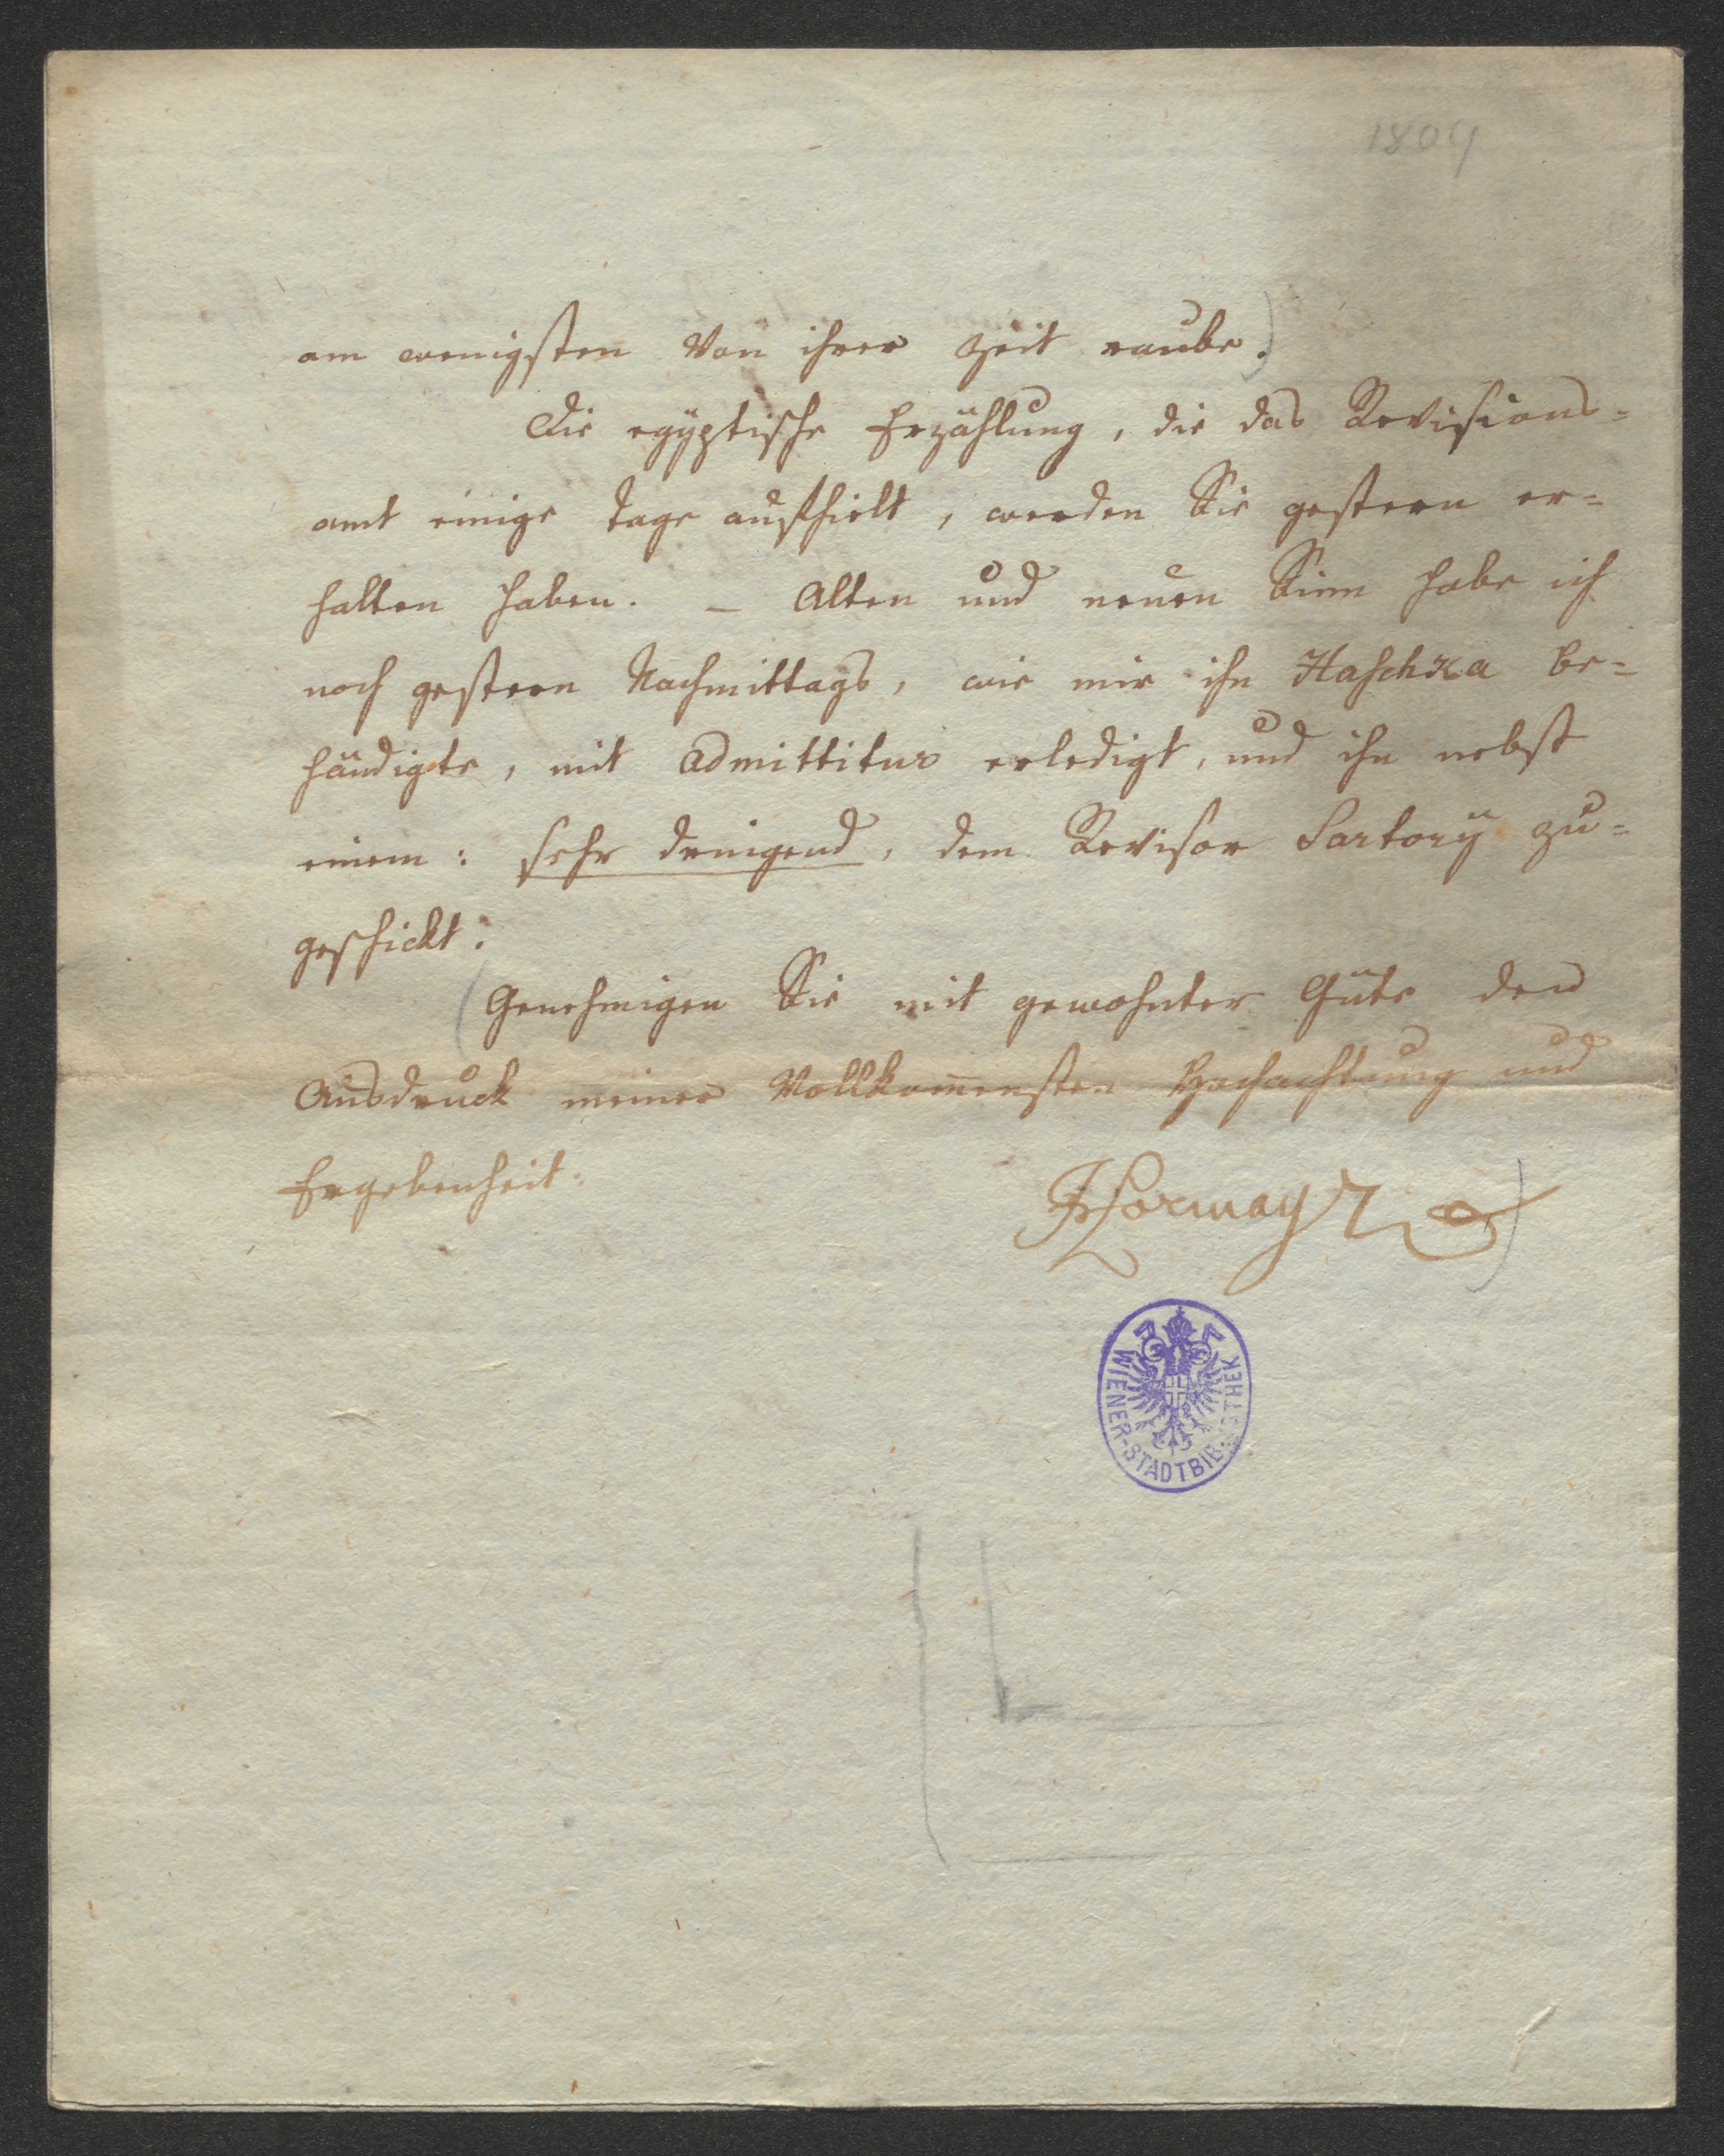 1809
am wenigsten Von ihrer Zeit raube.)
Die egÿptische Erzählung, die das Revisions=
amt einige Tage aufhielt, werden Sie gestern er=
halten haben. – Alten und neuen Sinn habe ich
noch gestern Nachmittags, wie mir ihn Haschka be=
händigte, mit admittitur erledigt, und ihn nebst
einem: sehr dringend, dem Revisor Sartorÿ zu=
geschickt.
(Genehmigen Sie mit gewohnter Güte den
Ausdruck meiner Vollkom̅ensten Hochachtung und
Ergebenheit.
Hormayr)
WIENER-STADTBIBLIOTHEK